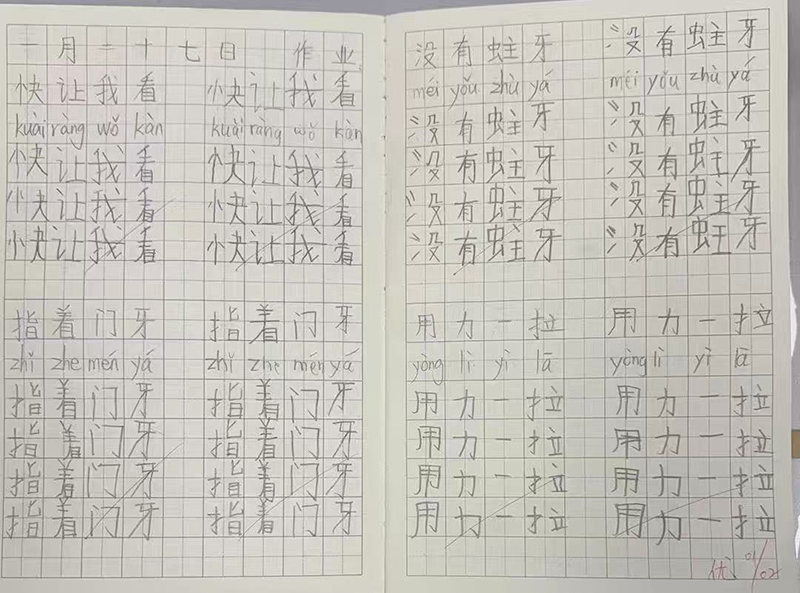 一月二十七日 作业
快让我看 快让我看
kuài ràng wǒ kàn kuài ràng wǒ kàn
快让我看 快让我看
快让我看 快让我看
快让我看 快让我看
指着门牙 指着门牙
zhǐ zhe mén yá zhǐ zhe mén yá
指着门牙 指着门牙
指着门牙 指着门牙
指着门牙 指着门牙
指着门牙 指着门牙
没有蛀牙 没有蛀牙
méi yǒu zhù yá méi yǒu zhù yá
没有蛀牙 没有蛀牙
没有蛀牙 没有蛀牙
没有蛀牙 没有蛀牙
没有蛀牙 没有蛀牙
用力一拉 用力一拉
yòng lì yì lā yòng lì yì lā
用力一拉 用力一拉
用力一拉 用力一拉
用力一拉 用力一拉
用力一拉 用力一拉
优 01/02